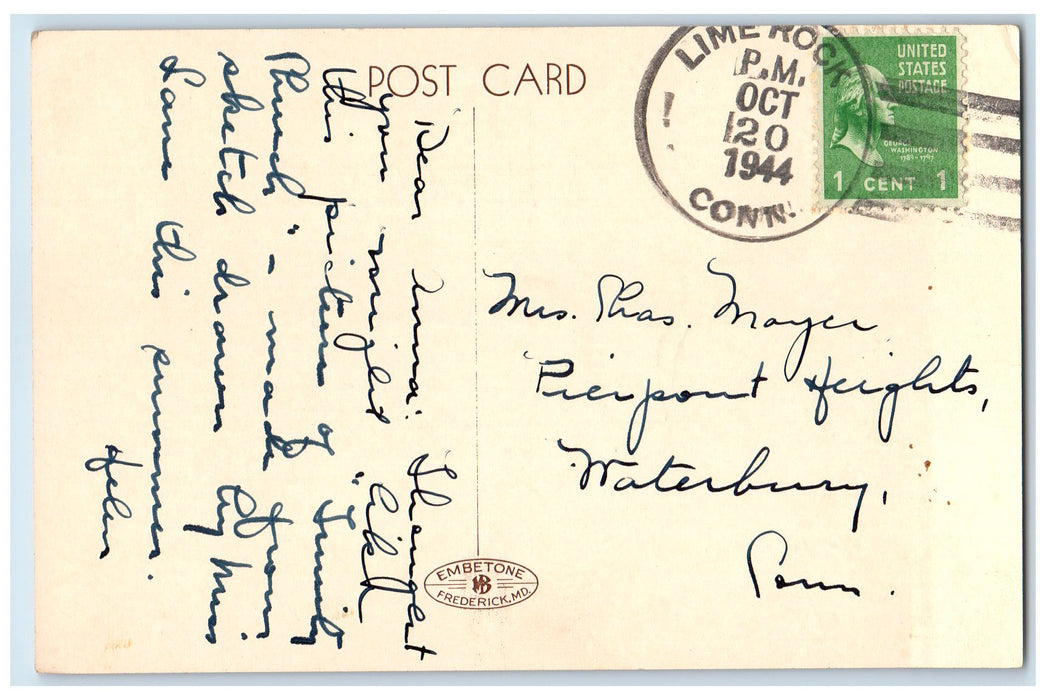 POST CARD
LIME ROCK
P.M.
OCT
20
1944
CONN.
UNITED
STATES
POSTAGE
GEORGE
WASHINGTON
1789-1797
1 CENT 1
Dear Anna: Thought
you might like
this picture of "Trinity
Church" – made from
sketch drawn by Miss
Lane this summer.
Helen
Mrs. Chas. Mayer
Pierpont Heights,
Waterbury,
Conn.
EMBETONE
FREDERICK, MD.